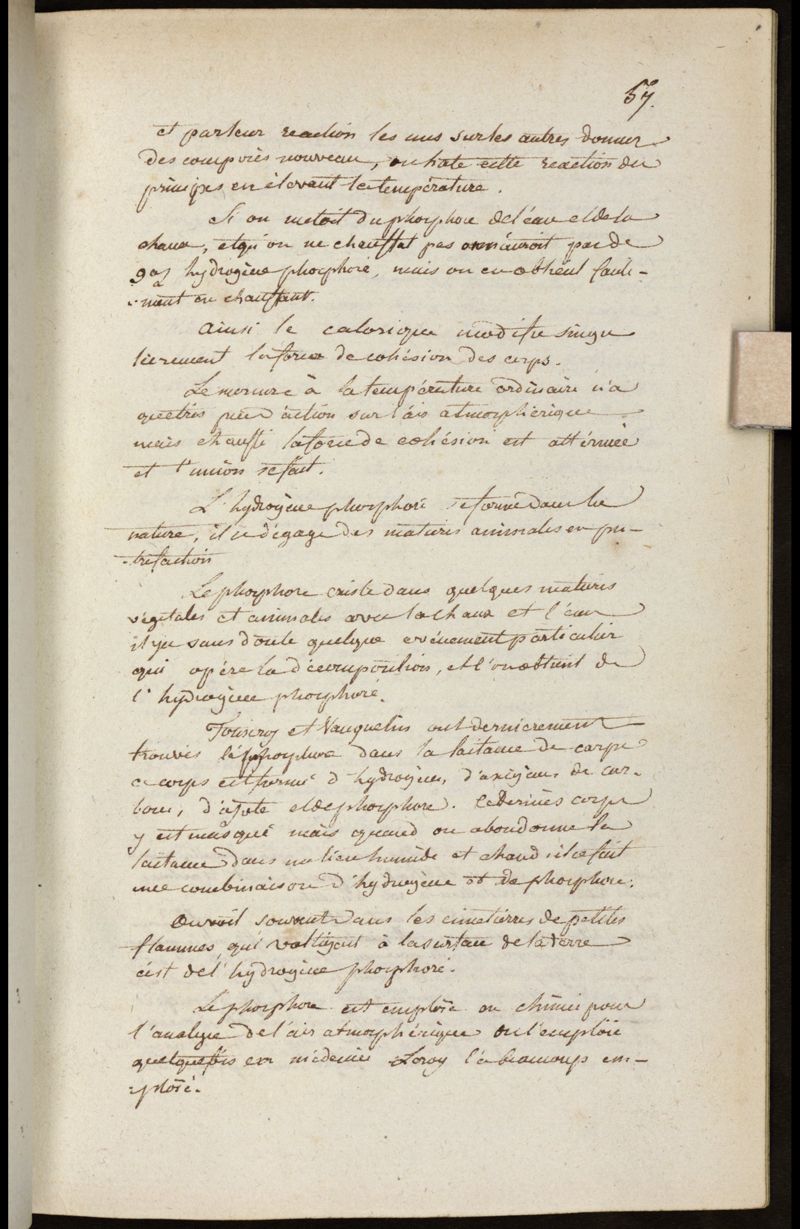 57.
et par leur reaction les uns sur les autres donner
des composés nouveau, on hate cette reaction des
principes en élevant la température.
Si on metoit du phosphore de l'eau et de la
chaux, et qu'on ne chauffat pas on n'auroit pas de
gas hydrogène phosphoré, mais on en obtient facile-
-ment en chauffant.
Ainsi le calorique modifie singu
lierement la force de cohésion des corps.
Le mercure à la température ordinaire n'a
que très peu d'action sur l'air atmosphérique
mais chauffé la force de cohésion est atténuée
et l'union se fait.
L'hydrogène phosphoré se forme dans la
nature, il se dégage des matieres animales en pu-
-trefaction
Le phosphore existe dans quelques matieres
végétales et animales avec la chaux et l'eau
il y a sans doute quelque evénement particulier
qui opére la décomposition, et l'on obtient de
l'hydrogène phosphoré.
Fourcroy et Vauquelin ont dernierement
trouvés le phosphore dans la laitance de carpe
ce corps est formé d'hydrogène, d'oxigène de car-
bone, d'azote et de phosphore. Ce dernier corps
y est masqué mais quand on abandonne la
laitance dans un lieu humide et chaud il se fait
une combinaison d'hydrogène et de phosphore.
On voit souvent dans les cimetières de petites
flammes qui voltigent à la surface de la terre
c'est de l'hydrogène phosphoré.
Le phosphore est emploié en chimie pour
l'analyse de l'air atmosphérique on l'emploie
quelquefois en médecine Leroy l'a beaucoup em-
-ploié.